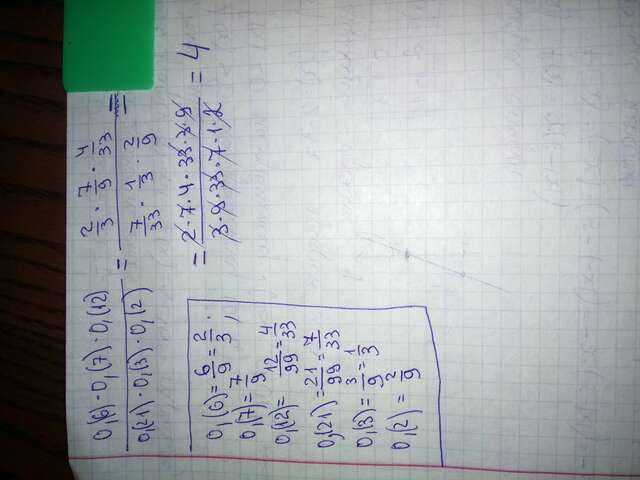 0,(6)·0,(7)·0,(12) / 0,(21)·0,(3)·0,(2) = 2/3 · 7/9 · 4/33 / 7/33 · 1/3 · 2/9 =
= 2·7·4·33·3·9 / 3·9·33·7·1·2 = 4
0,(6) = 6/9 = 2/3 ;
0,(7) = 7/9
0,(12) = 12/99 = 4/33
0,(21) = 21/99 = 7/33
0,(3) = 3/9 = 1/3
0,(2) = 2/9